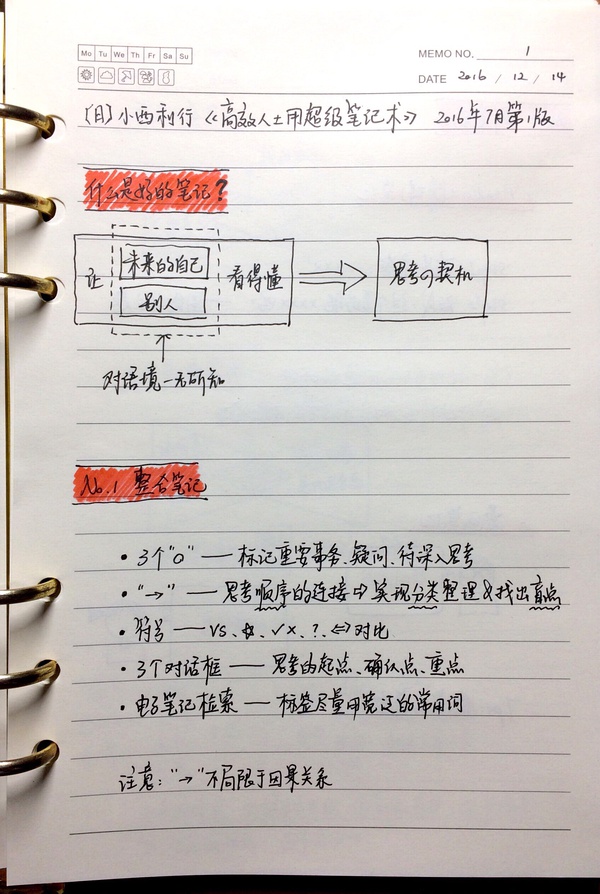 Mo Tu We Th Fr Sa Su
MEMO NO. 1
DATE 2016 / 12 / 14
[日] 小西利行 《高效人士用超级笔记术》 2016年7月第1版
什么是好的笔记?
让 未来的自己 别人 看得懂 ⇒ 思考の契机
↑
对语境一无所知
No.1 整合笔记
• 3个"o" —— 标记重要事务、疑问、待深入思考
• "→" —— 思考顺序的连接中实现分类整理&找出盲点
• 符号 —— VS、☆、√×、?、⇔对比
• 3个对话框 —— 思考的起点、确认点、重点
• 电子笔记检索 —— 标签尽量用宽泛的常用词
注意:"→"不局限于因果关系